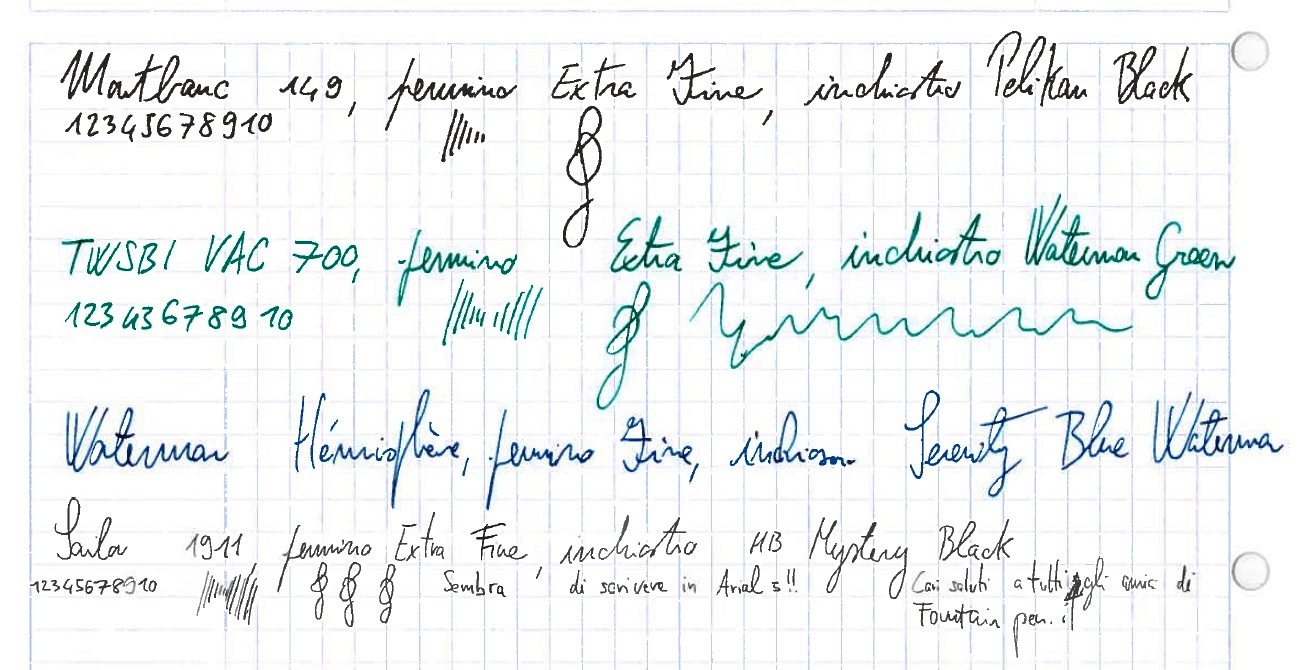 Montbanc 149, pennino Extra Fine, inchiostro Pelikan Black
12345678910
TWSBI VAC 700, pennino Extra Fine, inchiostro Waterman Green
12345678910
Waterman Hémisphère, pennino Fine, inchios Serenity Blue Waterman
Sailor 1911 pennino Extra Fine, inchiostro MB Mystery Black
12345678910 Sembra di scrivere in Arial 5!! Cari saluti a tutti gli amici di
Fountain pen. it